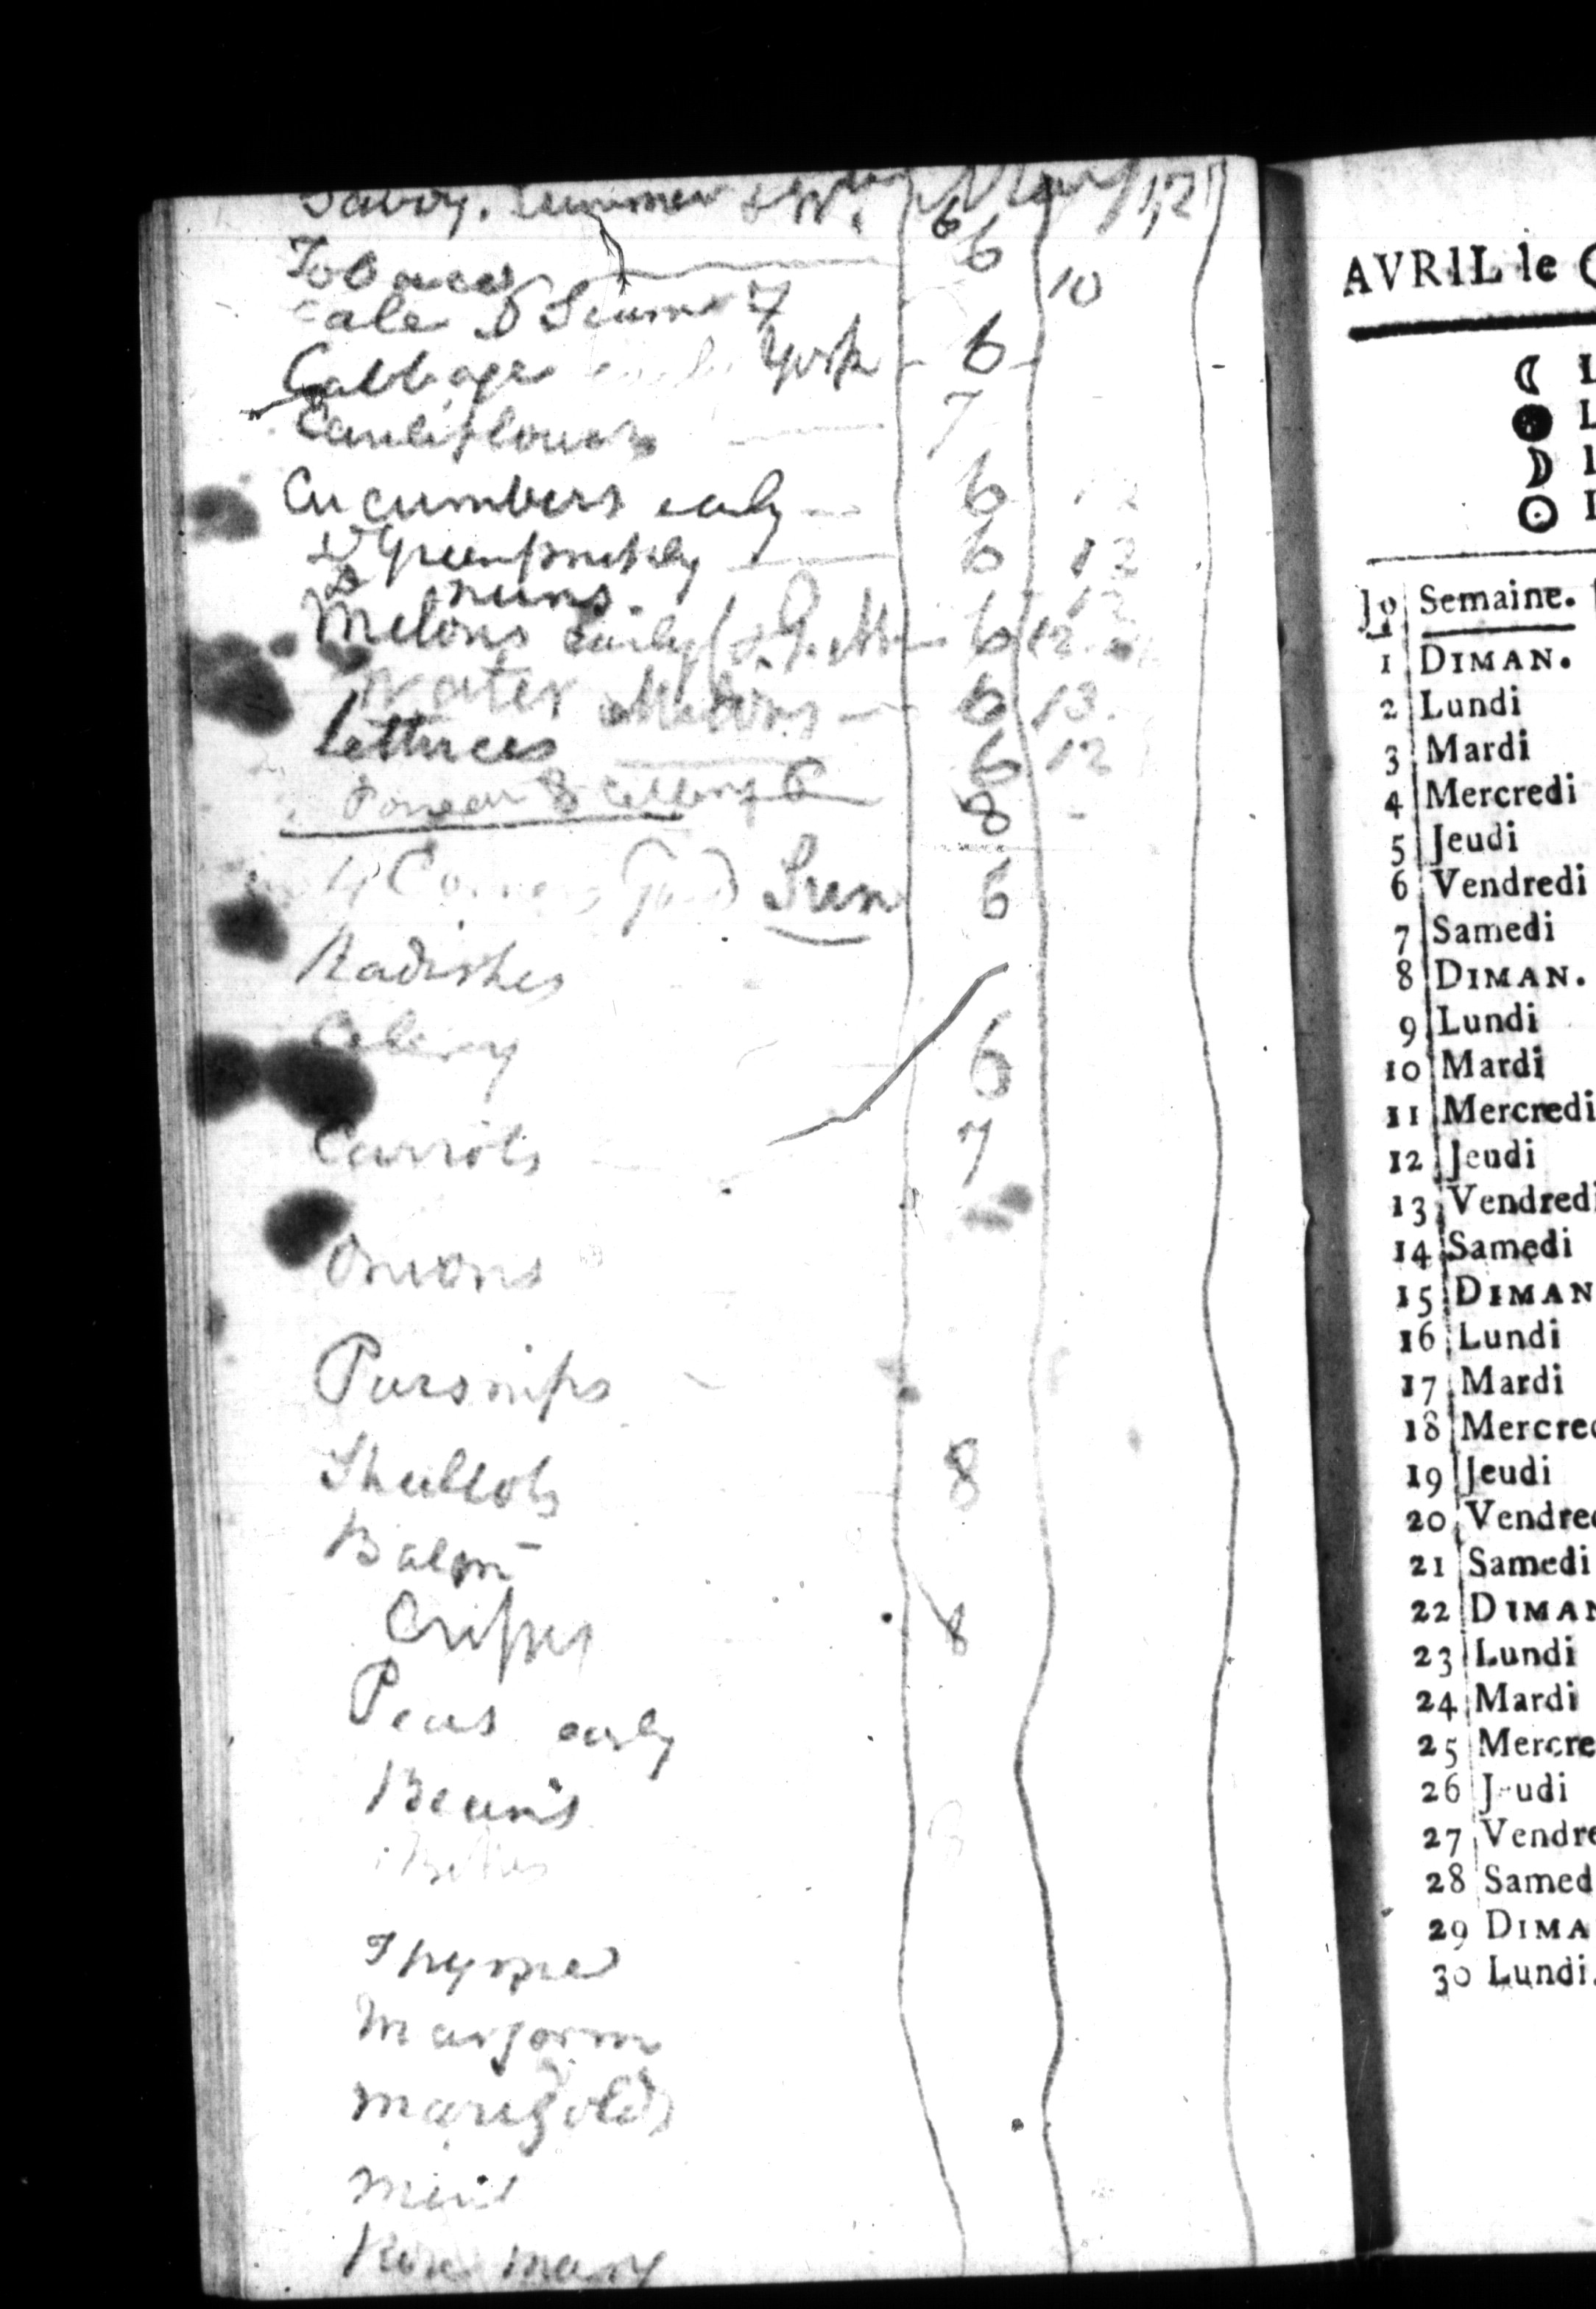 Savoy. Summer & Wr. May 12
6
Tobacco 6
Cale Do Scum 7 10
Cabbage early York 6
Cauliflower 7
Cucumbers early 6 12
Do Green prickly 6 12
Do nuns. 12
Melons Early 6 12
Water Melons 6 13.
Lettuces 6 12
8
4 Corners Sun 6
Radishes
Celery 6
Carrots 7
Onions
Parsnips
Shallots 8
Balm
Crisps 8
Peas early
Beans
Thyme
Marjorm
Marigolds
Mint
Rose mary
AVRIL le
Jo Semaine.
1 DIMAN.
2 Lundi
3 Mardi
4 Mercredi
5 Jeudi
6 Vendredi
7 Samedi
8 DIMAN.
9 Lundi
10 Mardi
11 Mercredi
12 Jeudi
13 Vendredi
14 Samedi
15 DIMAN
16 Lundi
17 Mardi
18 Mercred
19 Jeudi
20 Vendred
21 Samedi
22 DIMAN
23 Lundi
24 Mardi
25 Mercre
26 J-udi
27 Vendre
28 Samed
29 DIMA
30 Lundi.